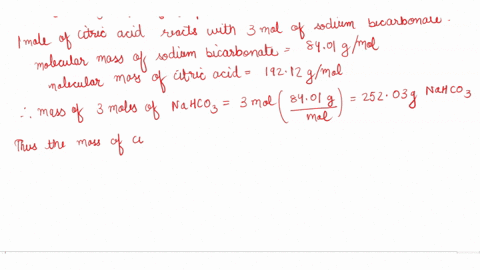 1 mole of citric acid reacts with 3 mol of sodium bicarbonate.
molecular mass of sodium bicarbonate = 84.01 g/mol
molecular mass of citric acid = 192.12 g/mol
∴ mass of 3 moles of NaHCO3 = 3 mol (84.01 g / mol) = 252.03 g NaHCO3
Thus the mass of ci